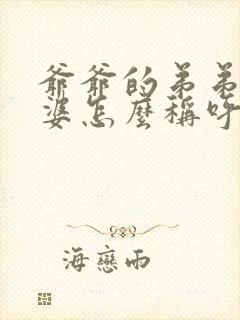 爺爺的弟弟
婆怎麼稱呼
海戀雨